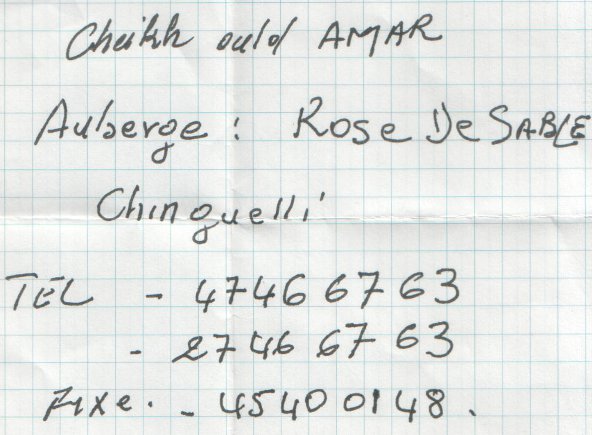 Cheikh ould AMAR
Auberge : Rose De SABLE
Chinguelli
TEL - 4746 67 63
- 2746 67 63
Fixe. - 45400148.